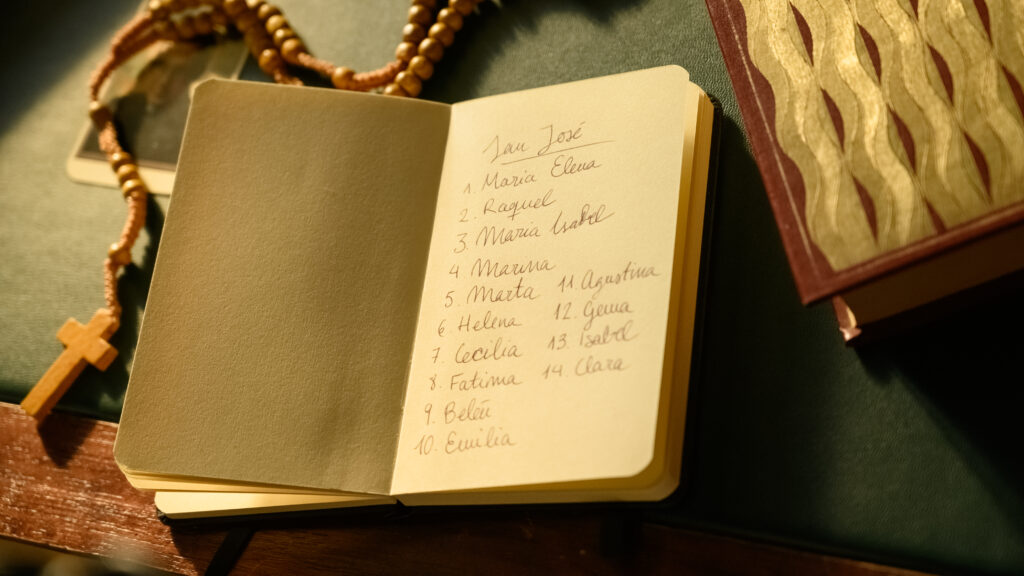 San José
1. Maria Elena
2. Raquel
3. Maria Isabel
4 Marina
5. Marta
6. Helena
7. Cecilia
8. Fatima
9. Belén
10. Emilia
11. Agustina
12. Gema
13. Isabel
14. Clara